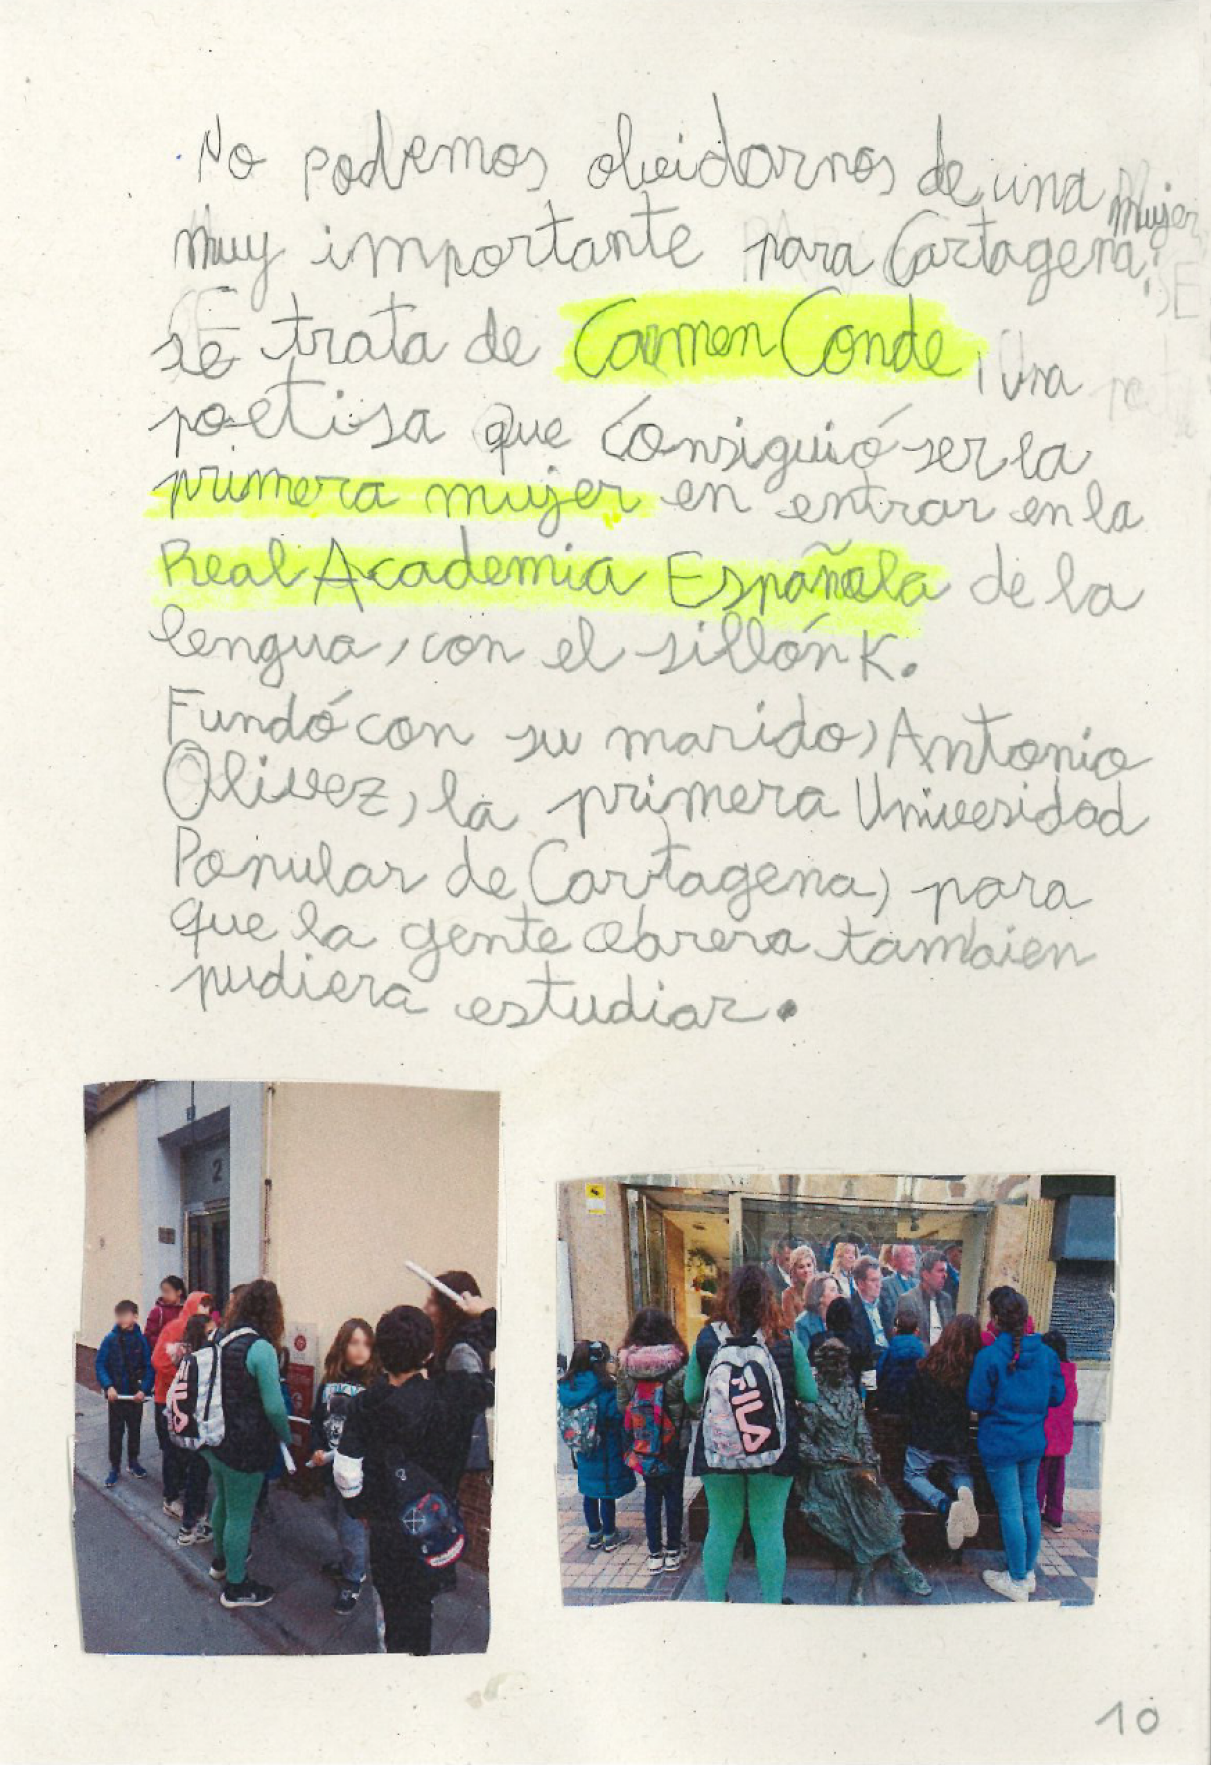 No podemos olvidarnos de una mujer
muy importante para Cartagena,
se trata de Carmen Conde, una
poetisa que consiguió ser la
primera mujer en entrar en la
Real Academia Española de la
lengua, con el sillón K.
Fundó con su marido, Antonio
Olivez, la primera Univesidad
Popular de Cartagena, para
que la gente obrera tambien
pudiera estudiar.
2
FILA
FILA
10